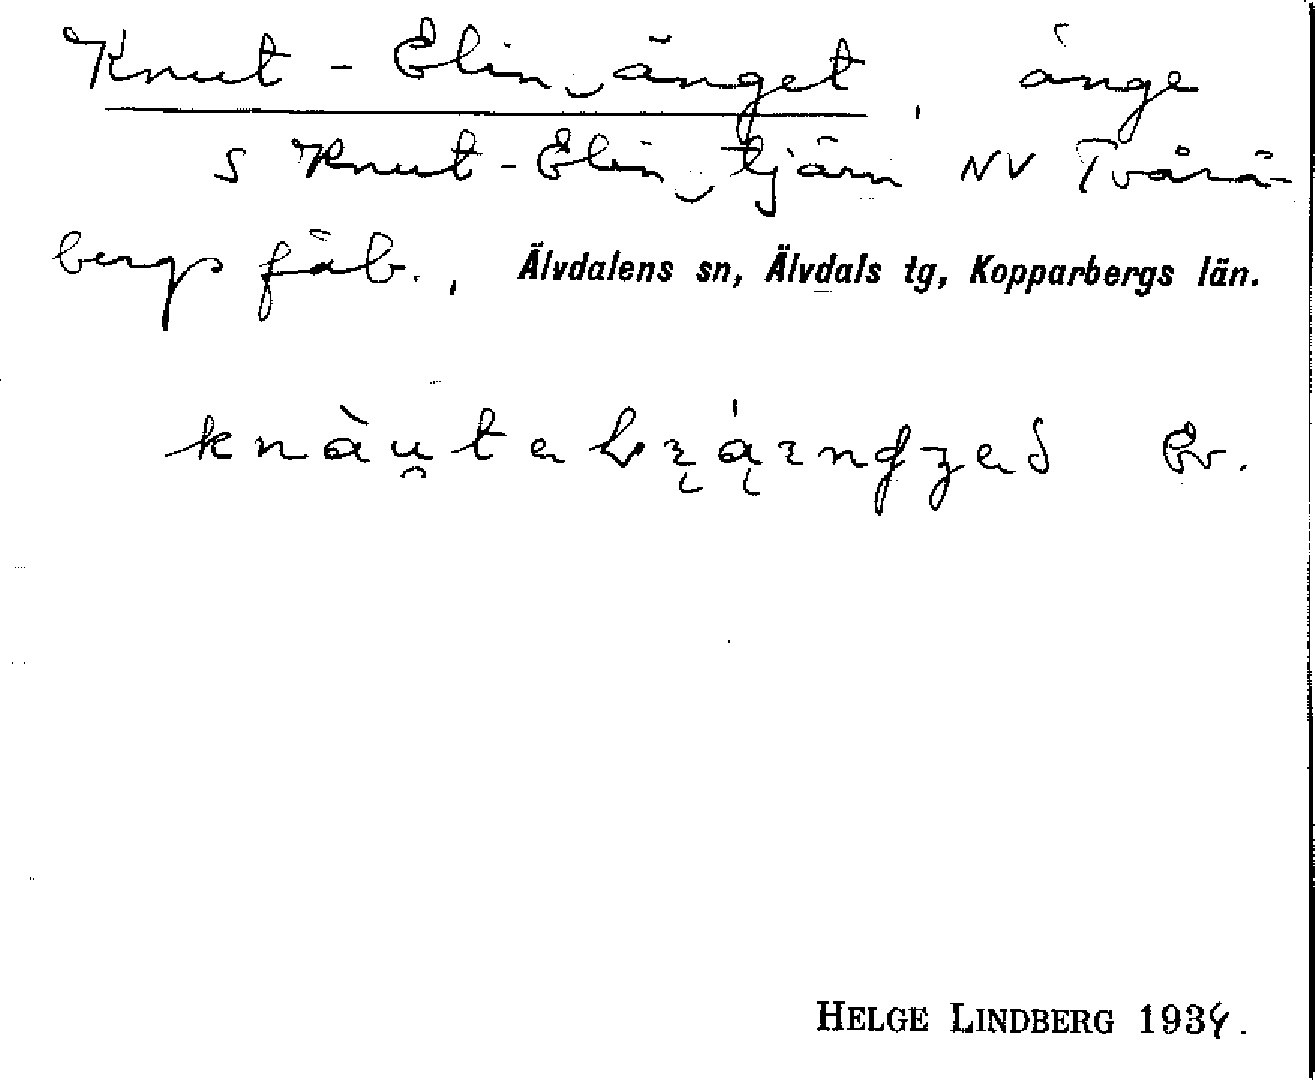 Knut-Elin‿änget, änge
s Knut-Elin‿tjärn NV Tvärå-
bergs fäb., Älvdalens sn, Älvdals tg, Kopparbergs län.
Ev.
HELGE LINDBERG 1934.